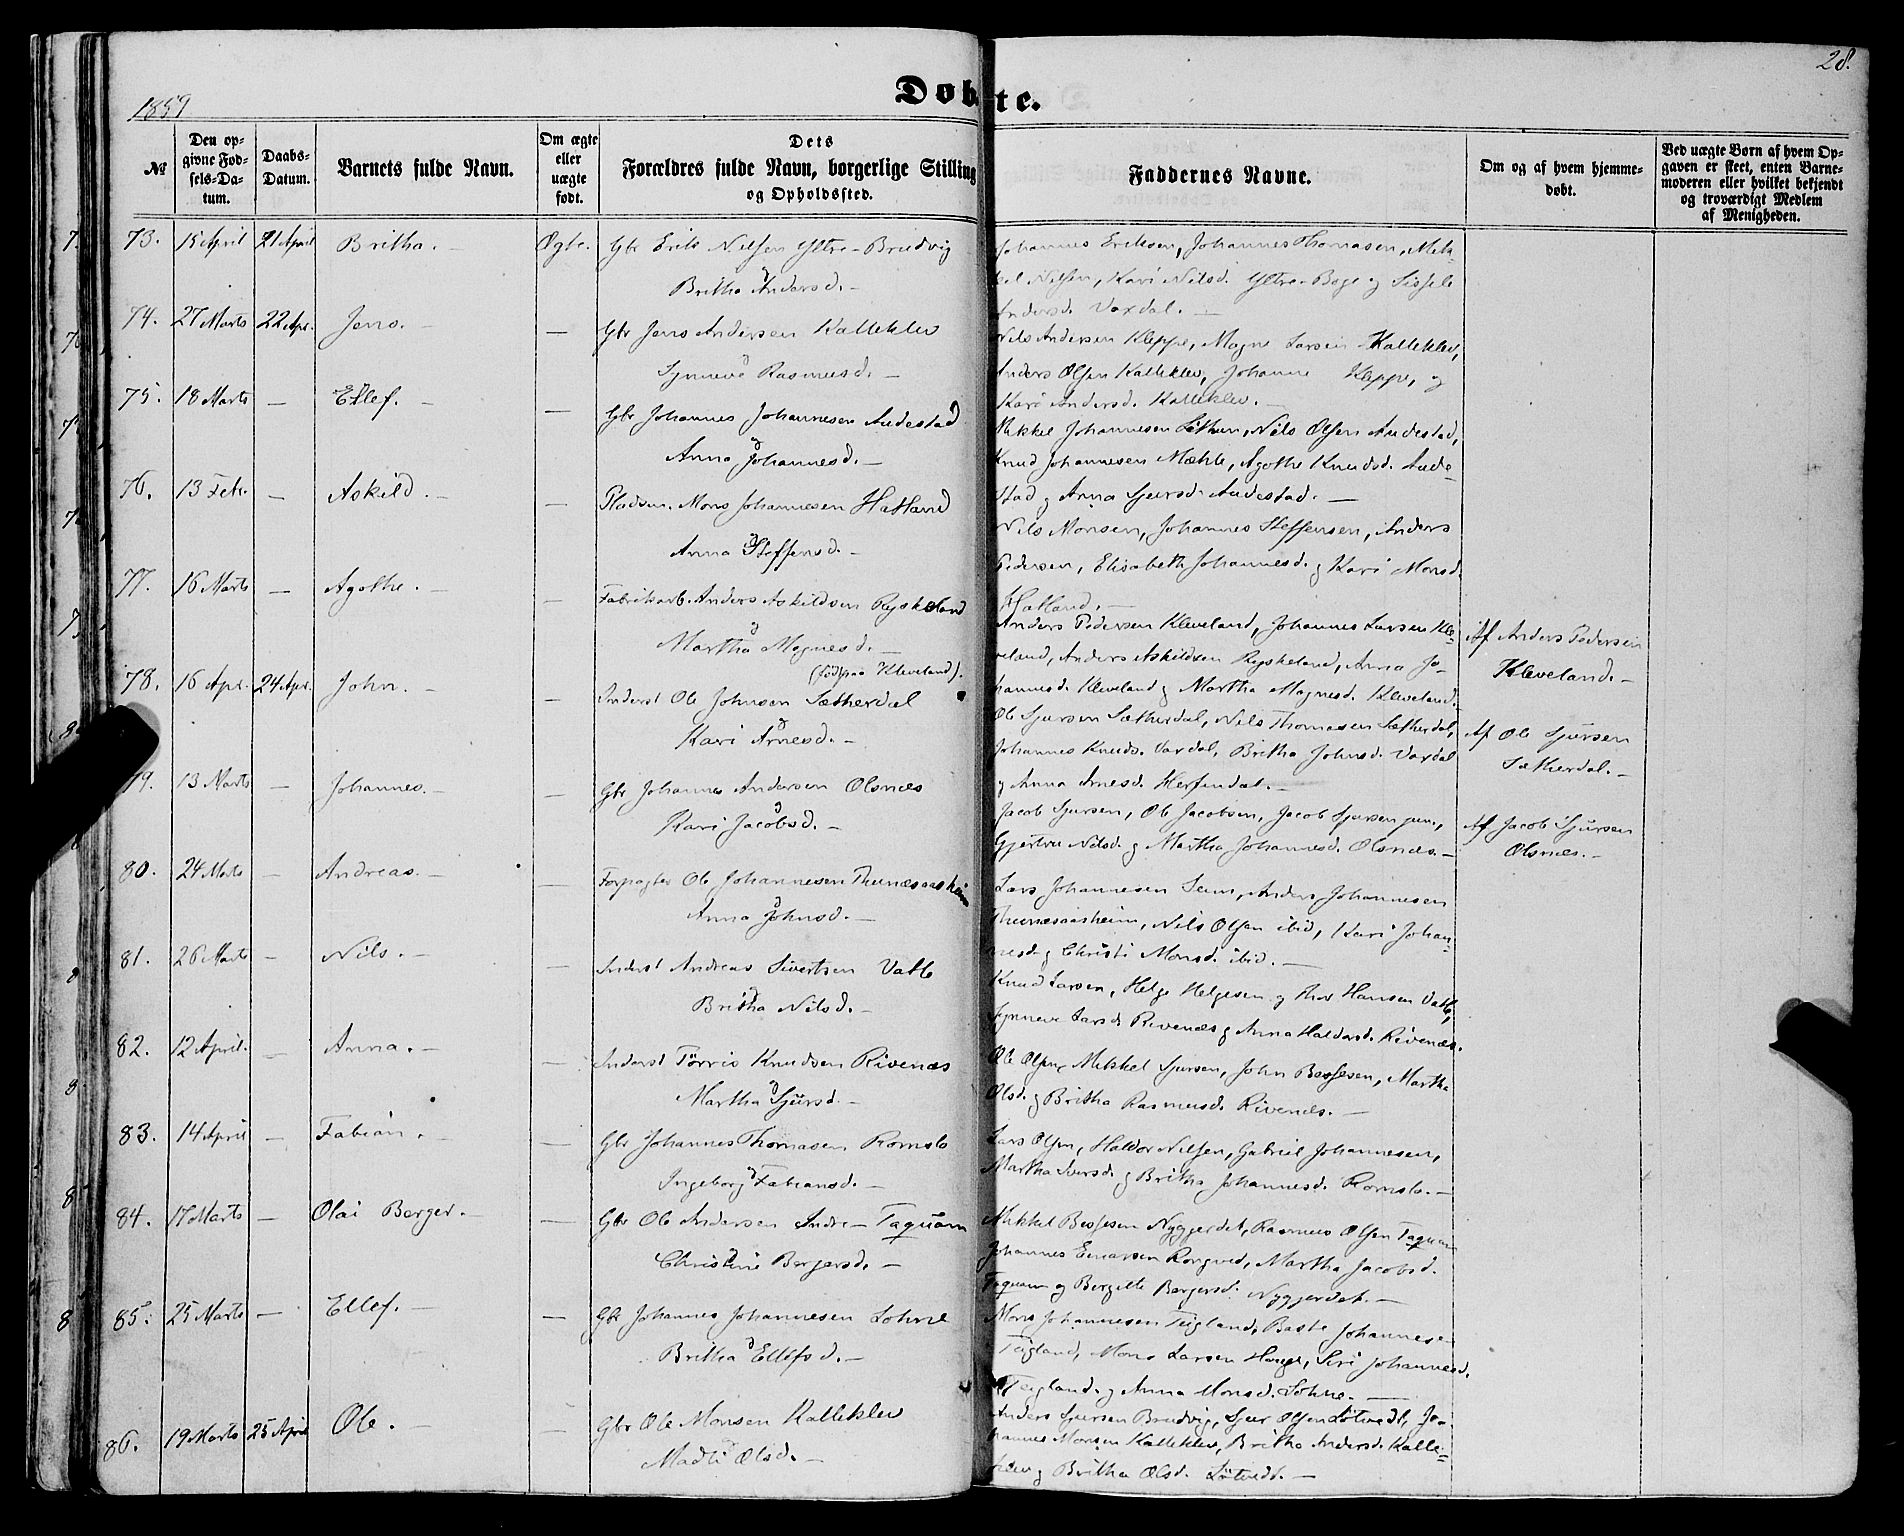 28.
1859
Døbte.
№
Den opgivne Fødsels-Datum.
Daabs-Datum.
Barnets fulde Navn.
Om ægte eller uægte født.
Dets Forældres fulde Navn, borgerlige Stilling og Opholdssted.
Faddernes Navne.
Om og af hvem hjemmedøbt.
Ved uægte Børn af hvem Opgaven er skeet, enten Barnemoderen eller hvilket bekjendt og troværdigt Medlem af Menigheden.
73. 15 April 21 April Britha. Ægte. Gbr Erik Nilsen Yttre-Brudvig
Britha Andersd.
Johannes Eriksen, Johannes Thomasen, Mik-
kel Nilsen, Kari Nilsd. Yttre-Boge og Sissele
Andersd. Vaxdal.
74. 27 Marts 22 Apr. Jens. — Gbr Jens Andersen Kalleklev
Synneve Rasmusd.
Nils Andersen Kleppe, Magne Larsen Kalleklev,
Anders Olsen Kalleklev, Johanne Kleppe, og
Kari Andersd. Kalleklev.
75. 18 Marts — Ellef. — Gbr Johannes Johannesen Audestad
Anna Johannesd.
Mikkel Johannesen Löthun, Nils Olsen Audestad,
Knud Johannesen Mæhle, Agothe Knudsd. Aude-
stad og Anna Sjursd. Audestad.
76. 13 Febr. — Askild. — Pladsm. Mons Johannesen Hatland
Anna Steffensd.
Nils Monsen, Johannes Steffensen, Anders
Pedersen, Elisabeth Johannesd. og Kari Monsd.
Hatland.
77. 16 Marts — Agothe. — Fabrikarb. Anders Askildsen Ryskeland
Martha Magnesd.
(født paa Kleveland).
Anders Pedersen Kleveland, Johannes Larsen Kle-
veland, Anders Askildsen Ryskeland, Anna Jo-
hannesd. Kleveland og Martha Magnesd. Kleveland.
Af Anders Pedersen
Kleveland.
78. 16 Apr. 24 Apr. John. — Inderst Ole Johnsen Sætherdal
Kari Arnesd.
Ole Sjursen Sætherdal, Nils Thomasen Sætherdal,
Johannes Knuds. Vaxdal, Britha Johnsd. Vaxdal
og Anna Arnesd. Herfindal.
Af Ole Sjursen
Sætherdal.
79. 13 Marts — Johannes. — Gbr Johannes Andersen Olsnæs
Kari Jacobsd.
Jacob Sjursen, Ole Jacobsen, Jacob Sjursen jun,
Gjertrue Nilsd. og Martha Johannesd. Olsnæs.
Af Jacob Sjursen
Olsnæs.
80. 24 Marts — Andreas. — Forpagter Ole Johannesen Thunæsaasheim
Anna Johnsd.
Lars Johannesen Sum, Anders Johannesen
Thunæsaasheim, Nils Olsen ibid, Kari Johan-
nesd. og Christi Monsd. ibid.
81. 26 Marts — Nils. — Inderst Andreas Sivertsen Vatle
Britha Nilsd.
Knud Larsen, Helge Helgesen og Thor Hansen Vatle,
Synneve Larsd. Rivenæs og Anna Haldorsd. Rivenæs.
82. 12 April. — Anna. — Inderst Tørris Knudsen Rivenæs
Martha Sjursd.
Ole Olsen, Mikkel Sjursen, John Bessesen, Martha
Olsd. og Britha Rasmusd. Rivenæs.
83. 14 April — Fabian. — Gbr Johannes Thomasen Romslo
Ingeborg Fabiansd.
Lars Olsen, Haldor Nilsen, Gabriel Johannesen,
Martha Iversd. og Britha Johannesd. Romslo.
84. 17 Marts — Olai Berger. — Gbr Ole Andersen Indre-Taquam
Christine Bergersd.
Mikkel Bessesen Nyggjerdet, Rasmus Olsen Taquam
Johannes Einarsen Rongved, Martha Jacobsd.
Taquam og Bergitte Bergersd. Nyggjerdet.
85. 25 Marts — Ellef. — Gbr Johannes Johannesen Lohne
Britha Ellefsd.
Mons Johannesen Teigland, Baste Johannese-
Teigland, Mons Larsen Hauge, Siri Johannesd.
Teigland og Anna Monsd. Lohne.
86. 19 Marts 25 April Ole. — Gbr Ole Monsen Kalleklev
Madli Olsd.
Anders Sjursen Brudvig, Sjur Olsen Lötvedt, Jo-
hannes Monsen Kalleklev, Britha Andersd. Kalle-
klev og Britha Olsd. Lötvedt.